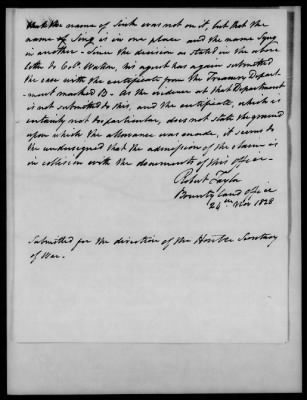 that the name of Sink was not on it, but that the
name of Sing is in one place and the name Syng
in another - Since the decision as stated in the above
letter to Col. Watson, his agent has again submitted
the case with the certificate from the Treasury Depart-
ment marked B - As the evidence at that Department
is not submitted to this, and the certificate, which is
certainly not particular, does not state the ground
upon which the allowance was made, it seems to
the undersigned that the admission of the claim is
in collision with the documents of this office -
Robert Taylor
Bounty Land Office
24th Nov 1828
Submitted for the direction of the Honble Secretary
of War.